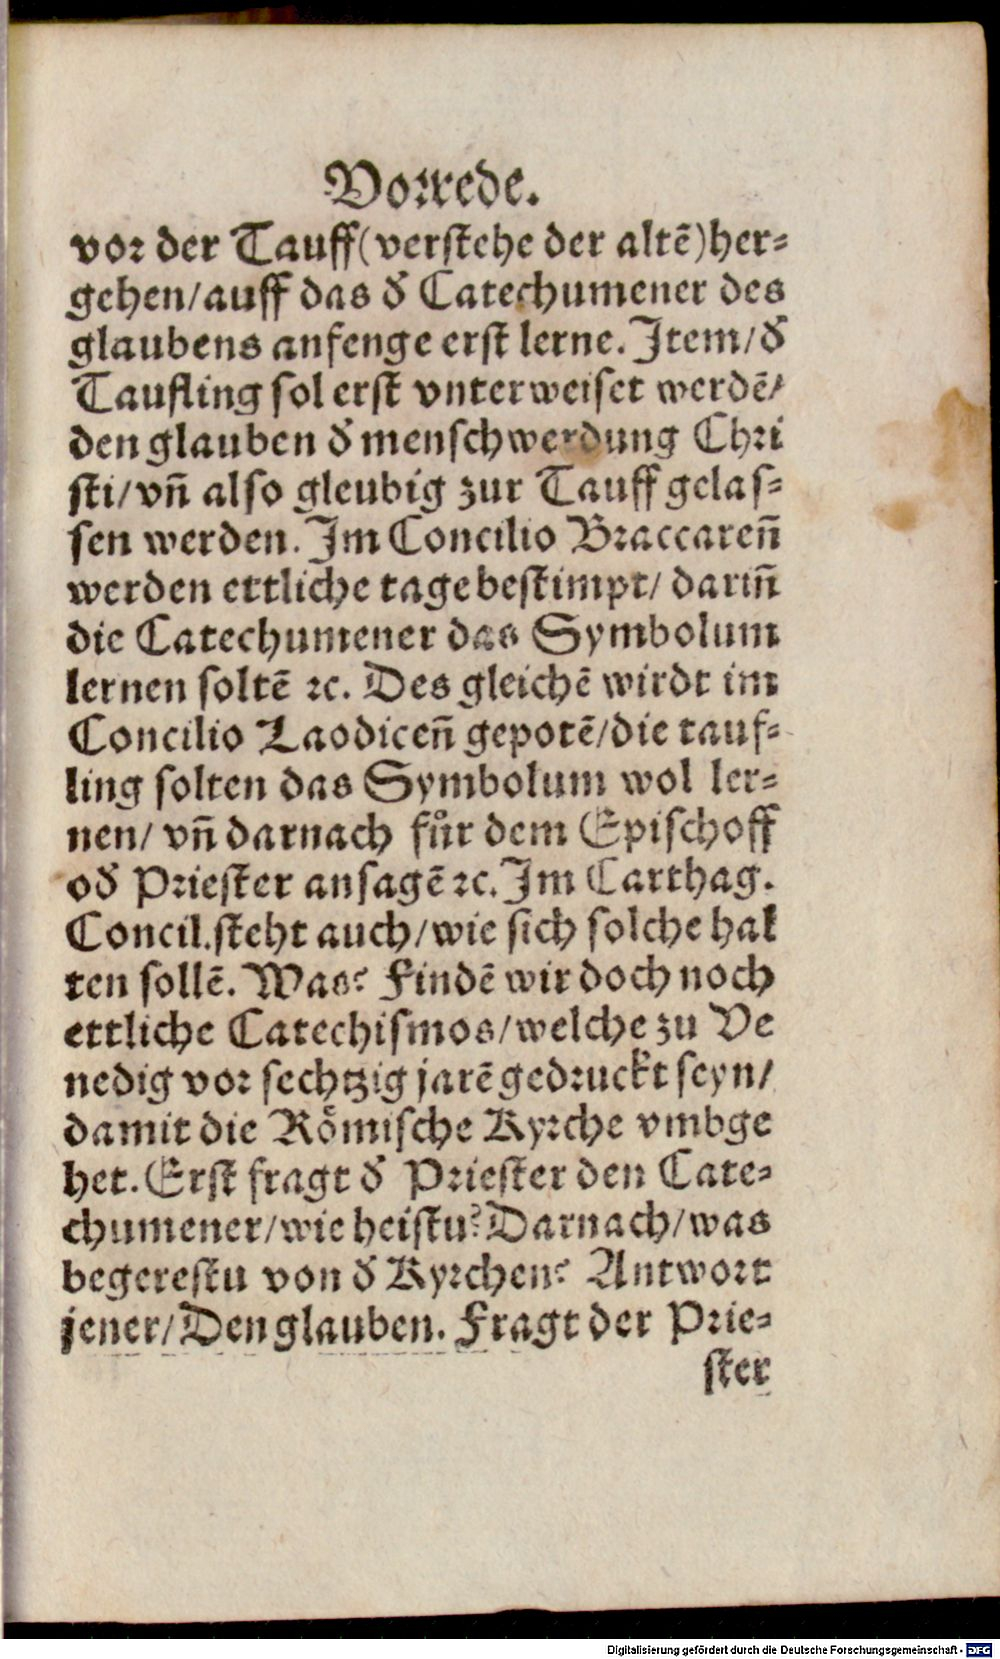 Vorrede.
vor der Tauff(verstehe der altẽ)her⸗
gehen/auff das d̕ Catechumener des
glaubens anfenge erst lerne. Item/d̕
Taufling sol erst vnterweiset werdẽ/
den glauben d̕ menschwerdung Chri
sti/vñ also gleubig zur Tauff gelas⸗
sen werden. Im Concilio Braccareñ
werden ettliche tage bestimpt/ dariñ
die Catechumener das Symbolum
lernen soltẽ ꝛc. Des gleichẽ wirdt im
Concilio Laodiceñ gepotẽ/die tauf⸗
ling solten das Symbolum wol ler⸗
nen/ vñ darnach fuͤr dem Epischoff
od̕ Priester ansagẽ ꝛc. Im Carthag.
Concil.steht auch/wie sich solche hal
ten sollẽ. Was? Findẽ wir doch noch
ettliche Catechismos/welche zu Ve
nedig vor sechtzig jarẽ gedruckt seyn/
damit die Roͤmische Kyrche vmbge
het. Erst fragt d̕ Priester den Cate⸗
chumener/wie heistu? Darnach/was
begerestu von d̕ Kyrchen? Antwort
jener/Den glauben. Fragt der Prie⸗
ster
Digitalisierung gefördert durch die Deutsche Forschungsgemeinschaft - DFG